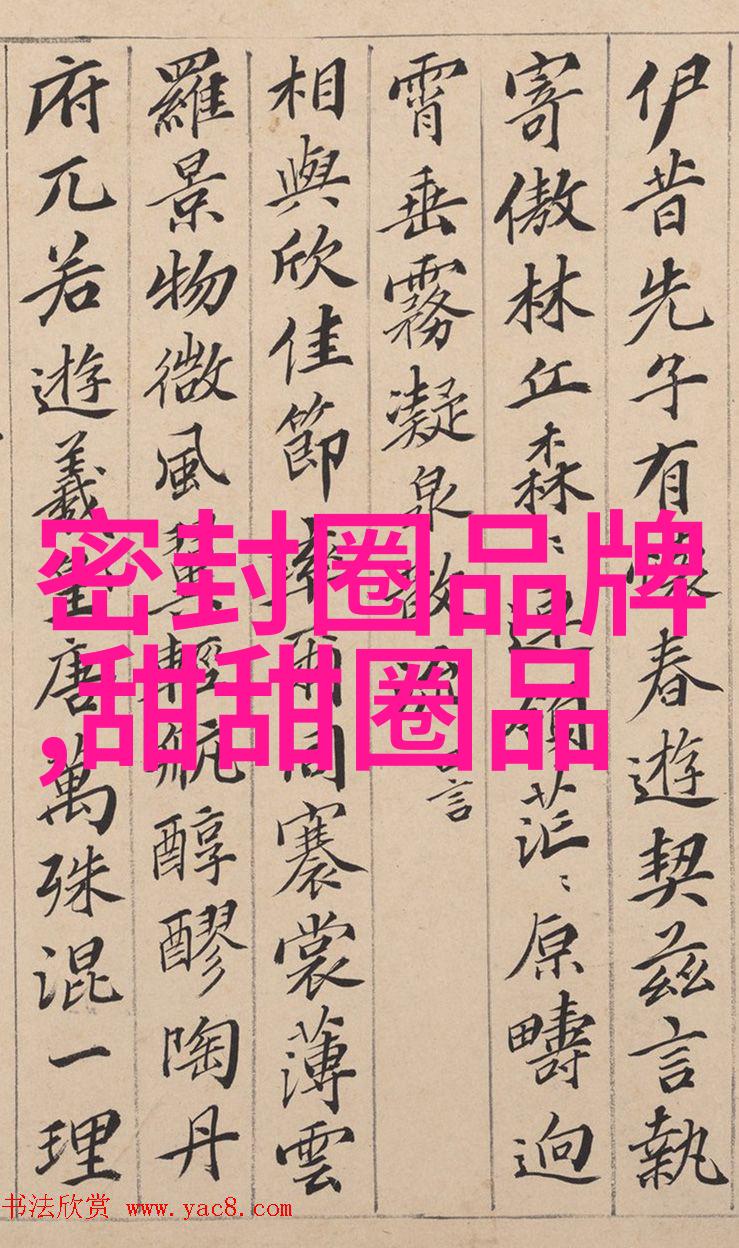 伊昔先子有懷春遊契茲言執
寄傲林丘森〻連嶺茫〻原疇迥
霄垂霧凝泉散流言
相與欣佳節率爾同褰裳薄雲
羅景物微風翼輕航醇醪陶丹
府兀若遊羲唐萬殊混一理
密封圈品牌
,甜甜圈品
书法欣赏 www.yac8.com